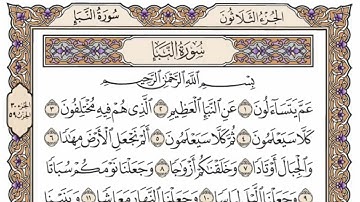 سُورَةُ النَّبَإِ
الجُزْءُ الثَّلَاثُونَ
سُورَةُ النَّبَإِ
بِسْمِ اللَّهِ الرَّحْمَٰنِ الرَّحِيمِ
عَمَّ يَتَسَاءَلُونَ ١ عَنِ النَّبَإِ الْعَظِيمِ ٢ الَّذِي هُمْ فِيهِ مُخْتَلِفُونَ ٣
كَلَّا سَيَعْلَمُونَ ٤ ثُمَّ كَلَّا سَيَعْلَمُونَ ٥ أَلَمْ نَجْعَلِ الْأَرْضَ مِهَادًا ٦
وَالْجِبَالَ أَوْتَادًا ٧ وَخَلَقْنَاكُمْ أَزْوَاجًا ٨ وَجَعَلْنَا نَوْمَكُمْ سُبَاتًا
٩ وَجَعَلْنَا اللَّيْلَ لِبَاسًا ١٠ وَجَعَلْنَا النَّهَارَ مَعَاشًا ١١ وَبَنَيْنَا